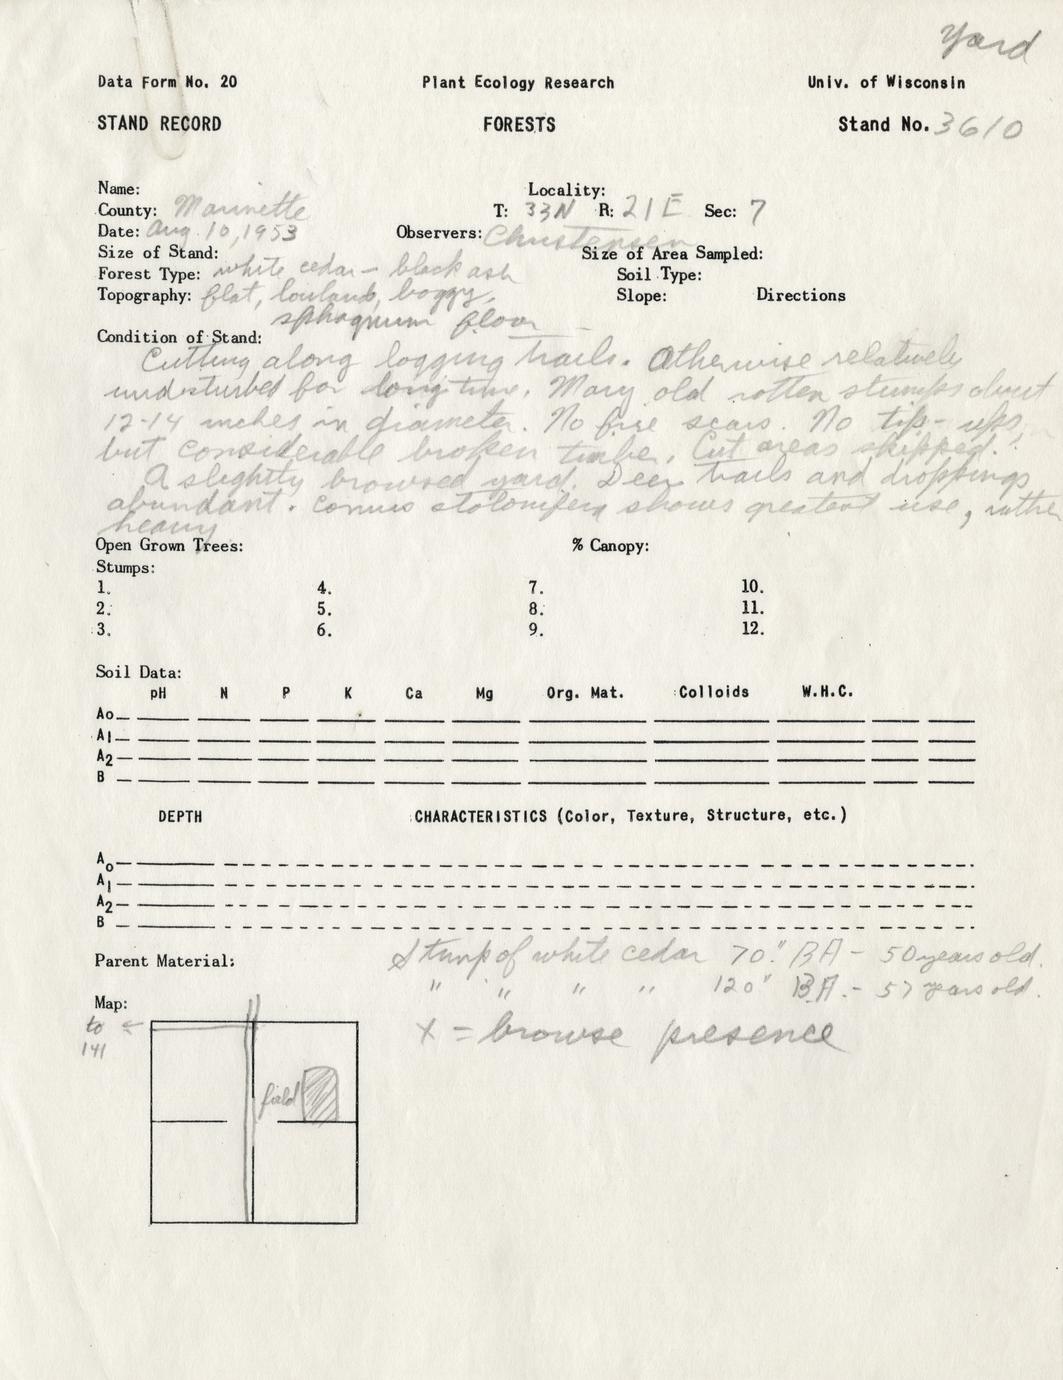 Yard
Data Form No. 20 Plant Ecology Research Univ. of Wisconsin
STAND RECORD FORESTS Stand No. 3610
Name: Locality:
County: Marinette T: 33N R: 21E Sec: 7
Date: Aug. 10, 1953 Observers: Christensen
Size of Stand: Size of Area Sampled:
Forest Type: white cedar - black ash Soil Type:
Topography: flat, lowland, boggy, Slope: Directions
sphagnum floor
Condition of Stand:
Cutting along logging trails. Otherwise relatively
undisturbed for long time. Many old rotten stumps about
12-14 inches in diameter. No fire scars. No tip-ups,
but considerable broken timber. Cut areas skipped.
A slightly browsed yard. Deer trails and droppings
abundant. Cornus stolonifera shows greatest use, rather
heavy
Open Grown Trees: % Canopy:
Stumps:
1. 4. 7. 10.
2. 5. 8. 11.
3. 6. 9. 12.
Soil Data:
pH N P K Ca Mg Org. Mat. Colloids W.H.C.
Ao
A1
A2
B
DEPTH CHARACTERISTICS (Color, Texture, Structure, etc.)
Ao
A1
A2
B
Stump of white cedar 70" BA - 50 years old.
Parent Material:
" " " " 120" BA. - 57 years old.
Map:
to ←
141
X = browse presence
field